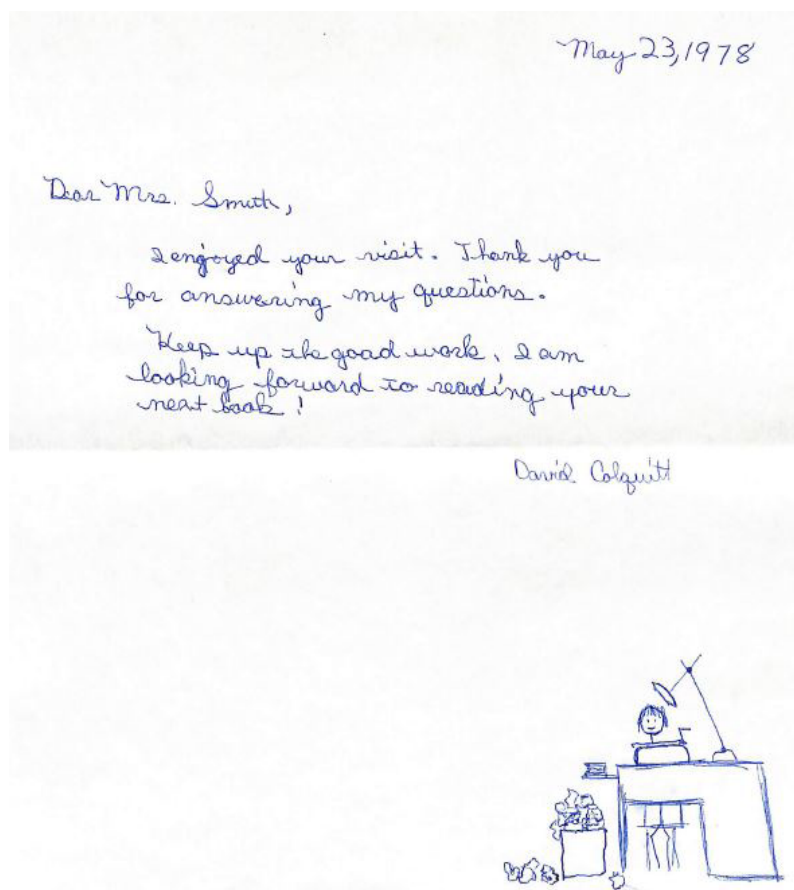 May 23, 1978
Dear Mrs. Smith,
I enjoyed your visit. Thank you
for answering my questions.
Keep up the good work, I am
looking forward to reading your
next book!
David Colquitt